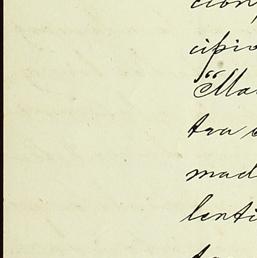 cion
cipio
"Ma
tra
mad
lenti